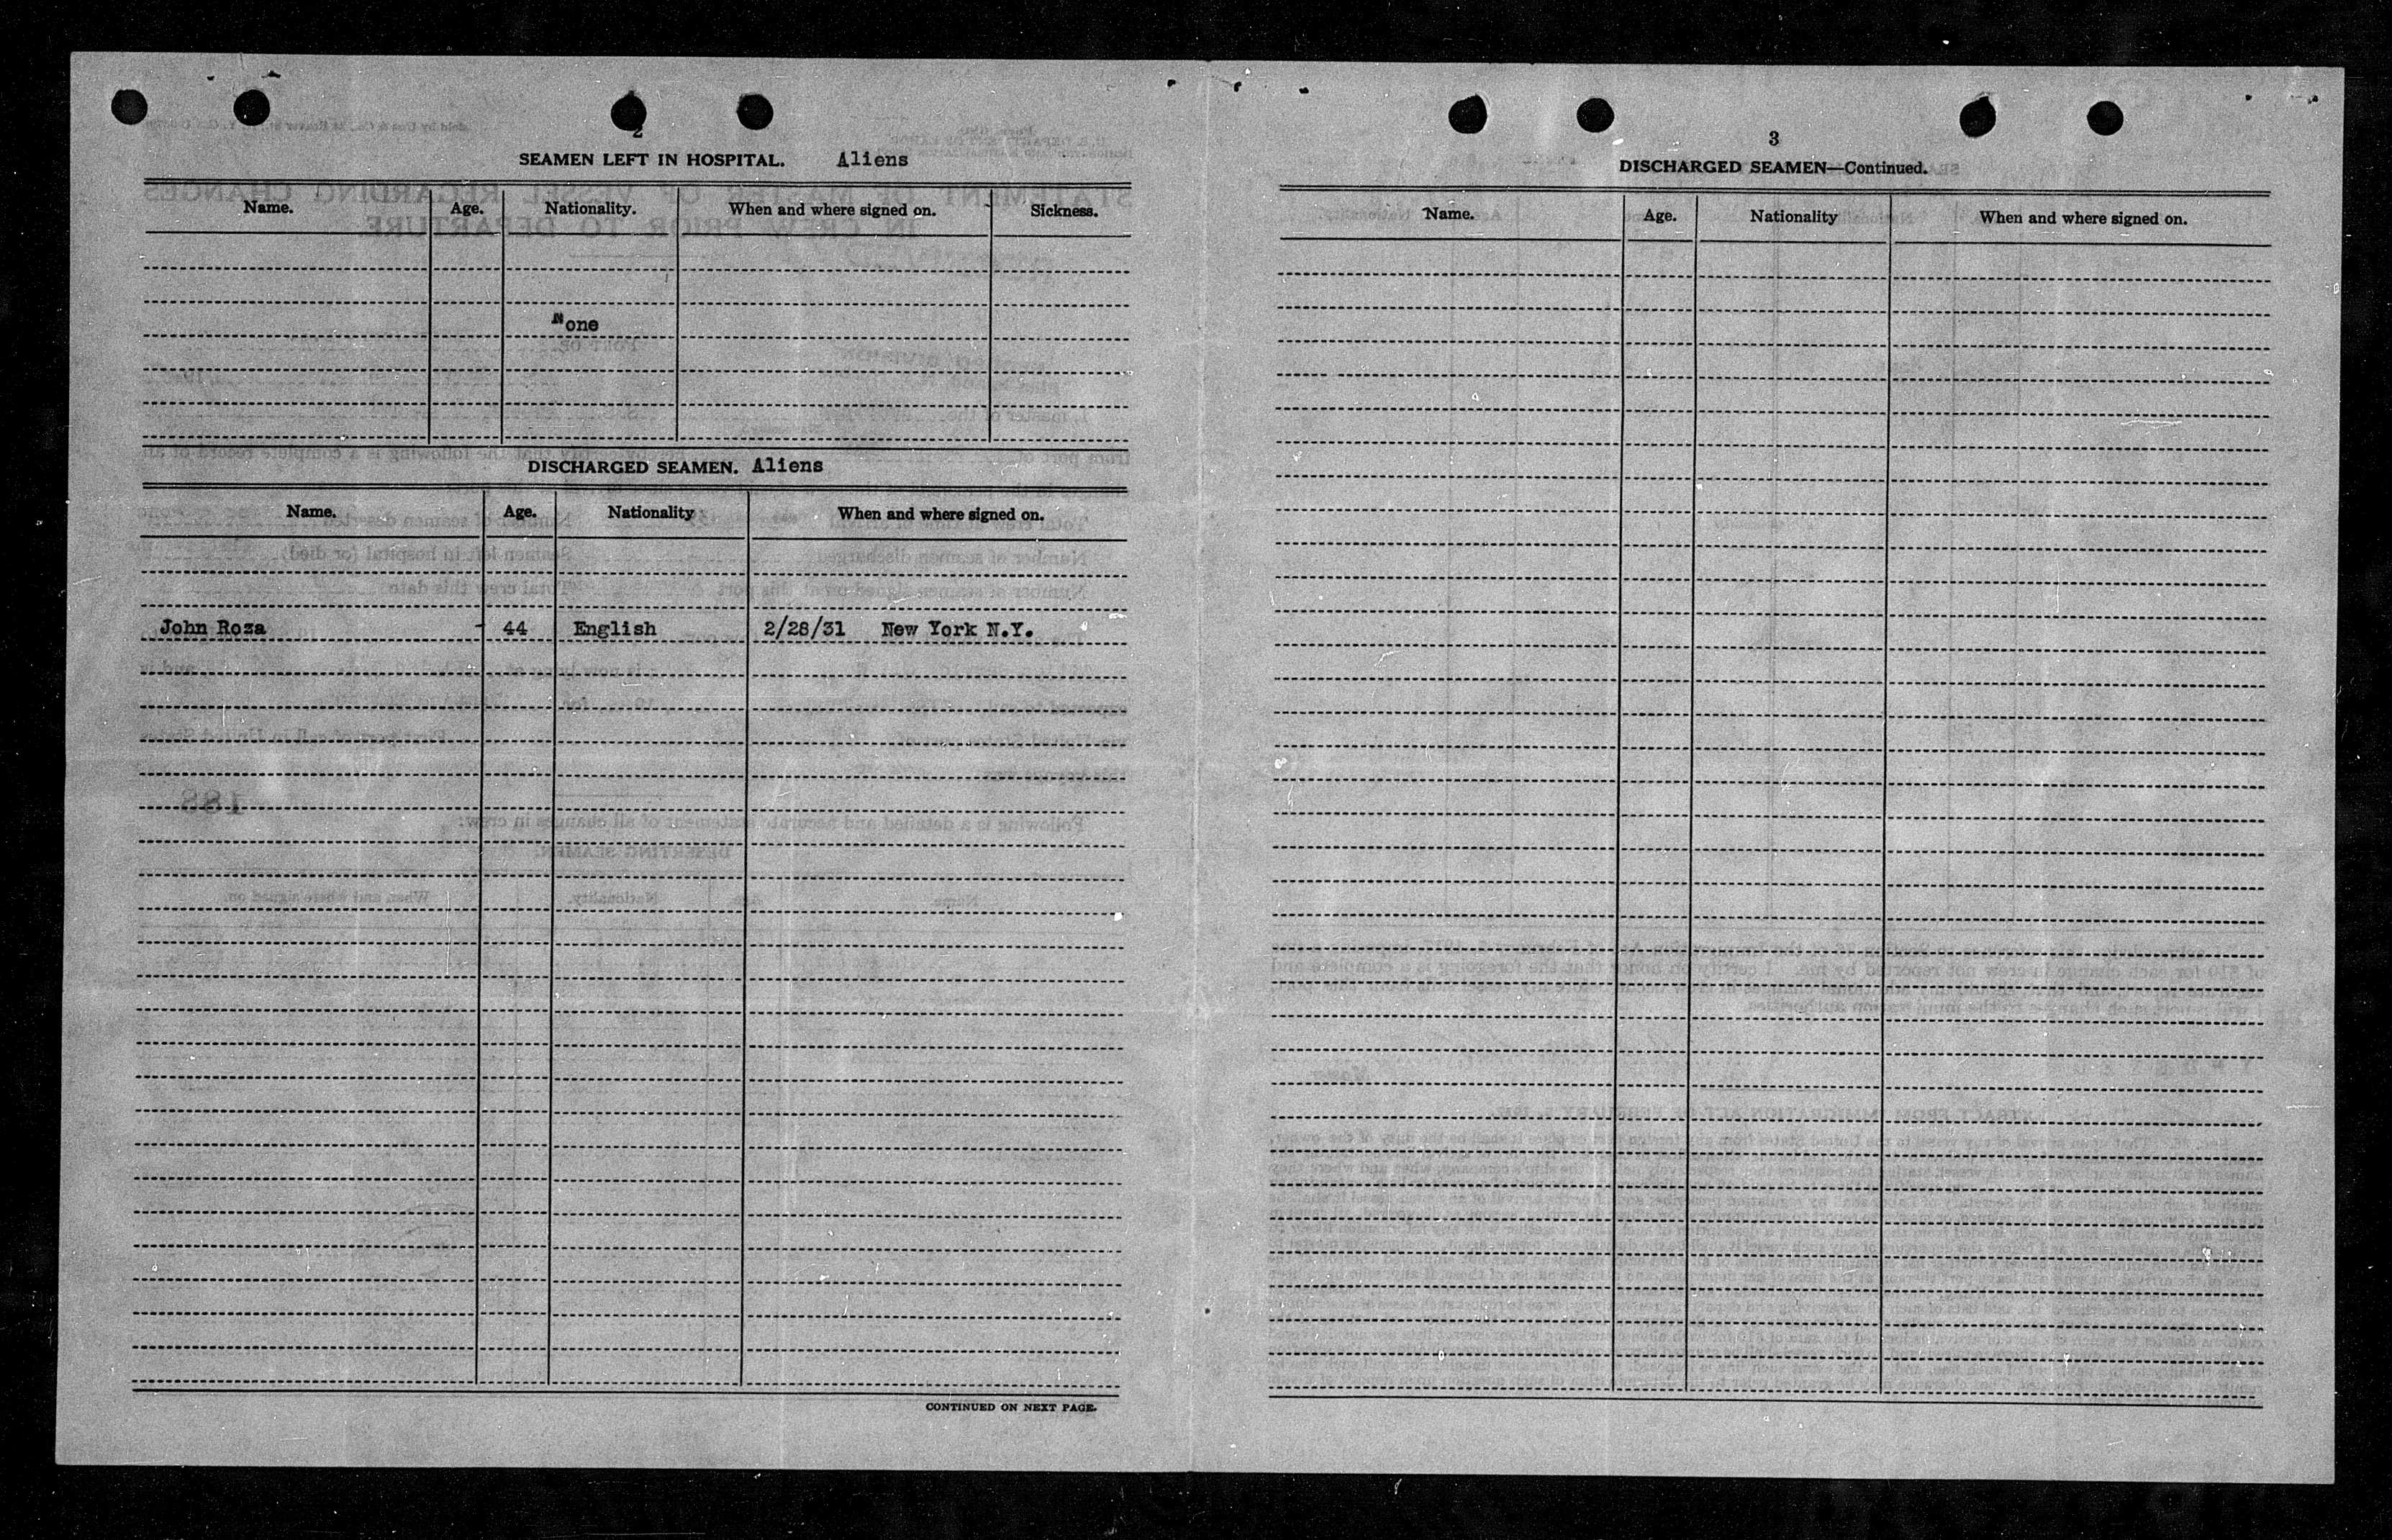 2
SEAMEN LEFT IN HOSPITAL. Aliens
Name. Age. Nationality. When and where signed on. Sickness.
None
DISCHARGED SEAMEN. Aliens
Name. Age. Nationality When and where signed on.
John Roza 44 English 2/28/31 New York N.Y.
CONTINUED ON NEXT PAGE.
3
DISCHARGED SEAMEN—Continued.
Name. Age. Nationality When and where signed on.